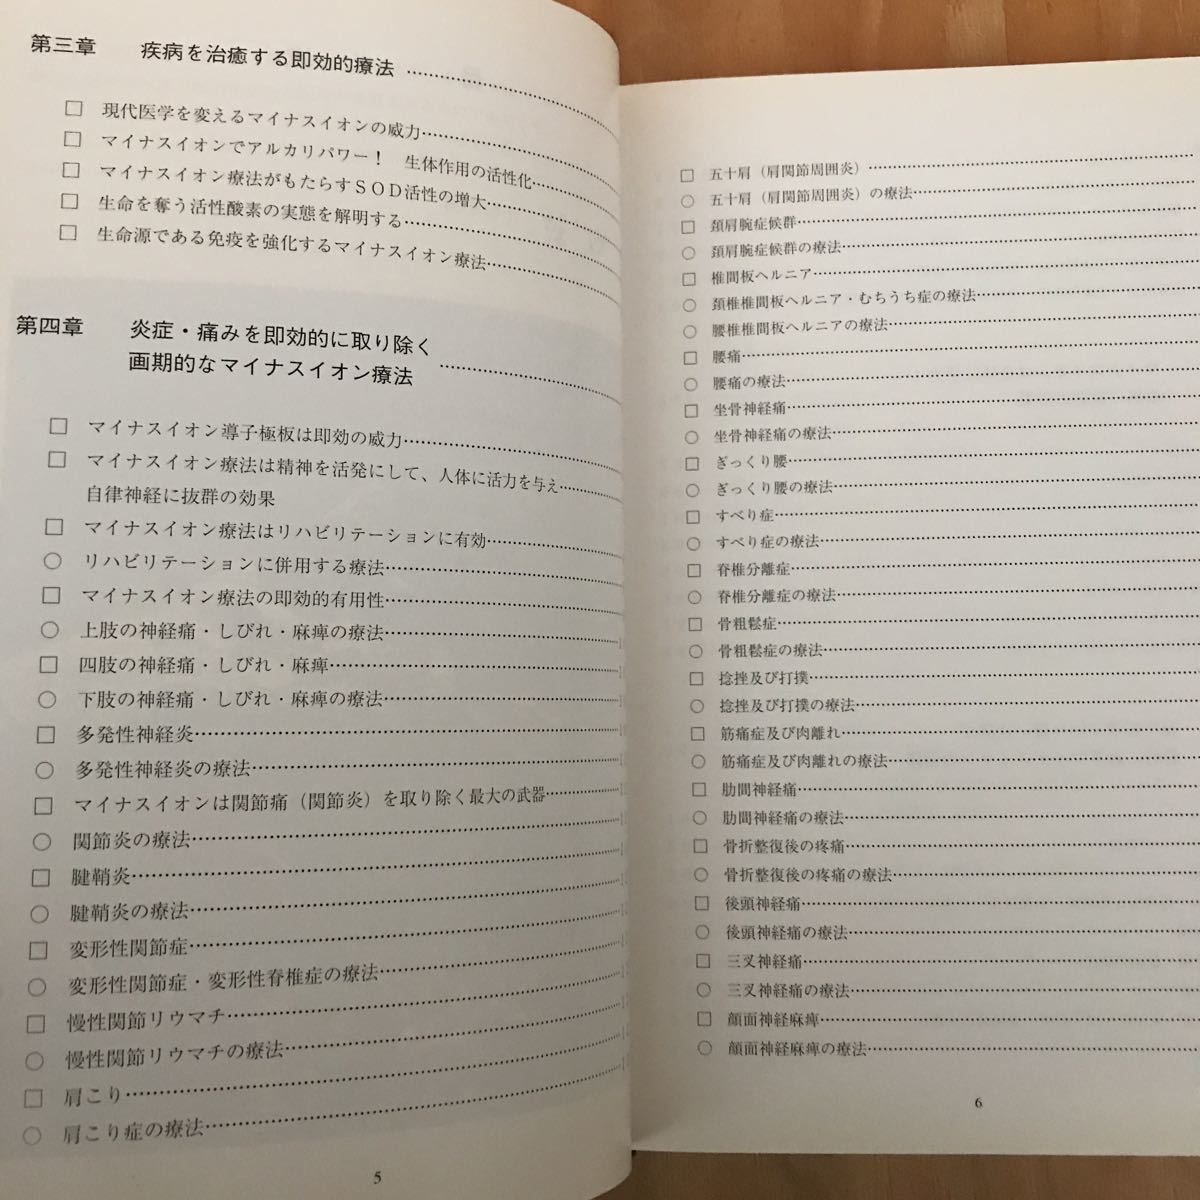 第三章 疾病を治癒する即効的療法
□ 現代医学を変えるマイナスイオンの威力
□ マイナスイオンでアルカリパワー！ 生体作用の活性化
□ マイナスイオン療法がもたらすSOD活性の増大
□ 生命を奪う活性酸素の実態を解明する
□ 生命源である免疫を強化するマイナスイオン療法
第四章 炎症・痛みを即効的に取り除く
画期的なマイナスイオン療法
□ マイナスイオン導子極板は即効の威力
□ マイナスイオン療法は精神を活発にして、人体に活力を与え
自律神経に抜群の効果
□ マイナスイオン療法はリハビリテーションに有効
○ リハビリテーションに併用する療法
□ マイナスイオン療法の即効的有用性
○ 上肢の神経痛・しびれ・麻痺の療法
□ 四肢の神経痛・しびれ・麻痺
○ 下肢の神経痛・しびれ・麻痺の療法
□ 多発性神経炎
○ 多発性神経炎の療法
□ マイナスイオンは関節痛（関節炎）を取り除く最大の武器
○ 関節炎の療法
□ 腱鞘炎
○ 腱鞘炎の療法
□ 変形性関節症
○ 変形性関節症・変形性脊椎症の療法
□ 慢性関節リウマチ
○ 慢性関節リウマチの療法
□ 肩こり
○ 肩こり症の療法
5
□ 五十肩（肩関節周囲炎）
○ 五十肩（肩関節周囲炎）の療法
□ 頚肩腕症候群
○ 頚肩腕症候群の療法
□ 椎間板ヘルニア
○ 頚椎椎間板ヘルニア・むちうち症の療法
○ 腰椎椎間板ヘルニアの療法
□ 腰痛
○ 腰痛の療法
□ 坐骨神経痛
○ 坐骨神経痛の療法
□ ぎっくり腰
○ ぎっくり腰の療法
□ すべり症
○ すべり症の療法
□ 脊椎分離症
○ 脊椎分離症の療法
□ 骨粗鬆症
○ 骨粗鬆症の療法
□ 捻挫及び打撲
○ 捻挫及び打撲の療法
□ 筋痛症及び肉離れ
○ 筋痛症及び肉離れの療法
□ 肋間神経痛
○ 肋間神経痛の療法
□ 骨折整復後の疼痛
○ 骨折整復後の疼痛の療法
□ 後頭神経痛
○ 後頭神経痛の療法
□ 三叉神経痛
○ 三叉神経痛の療法
□ 顔面神経麻痺
○ 顔面神経麻痺の療法
6